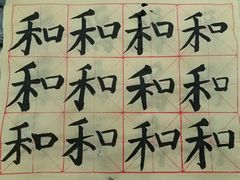 和和和和
和和和和
和和和和